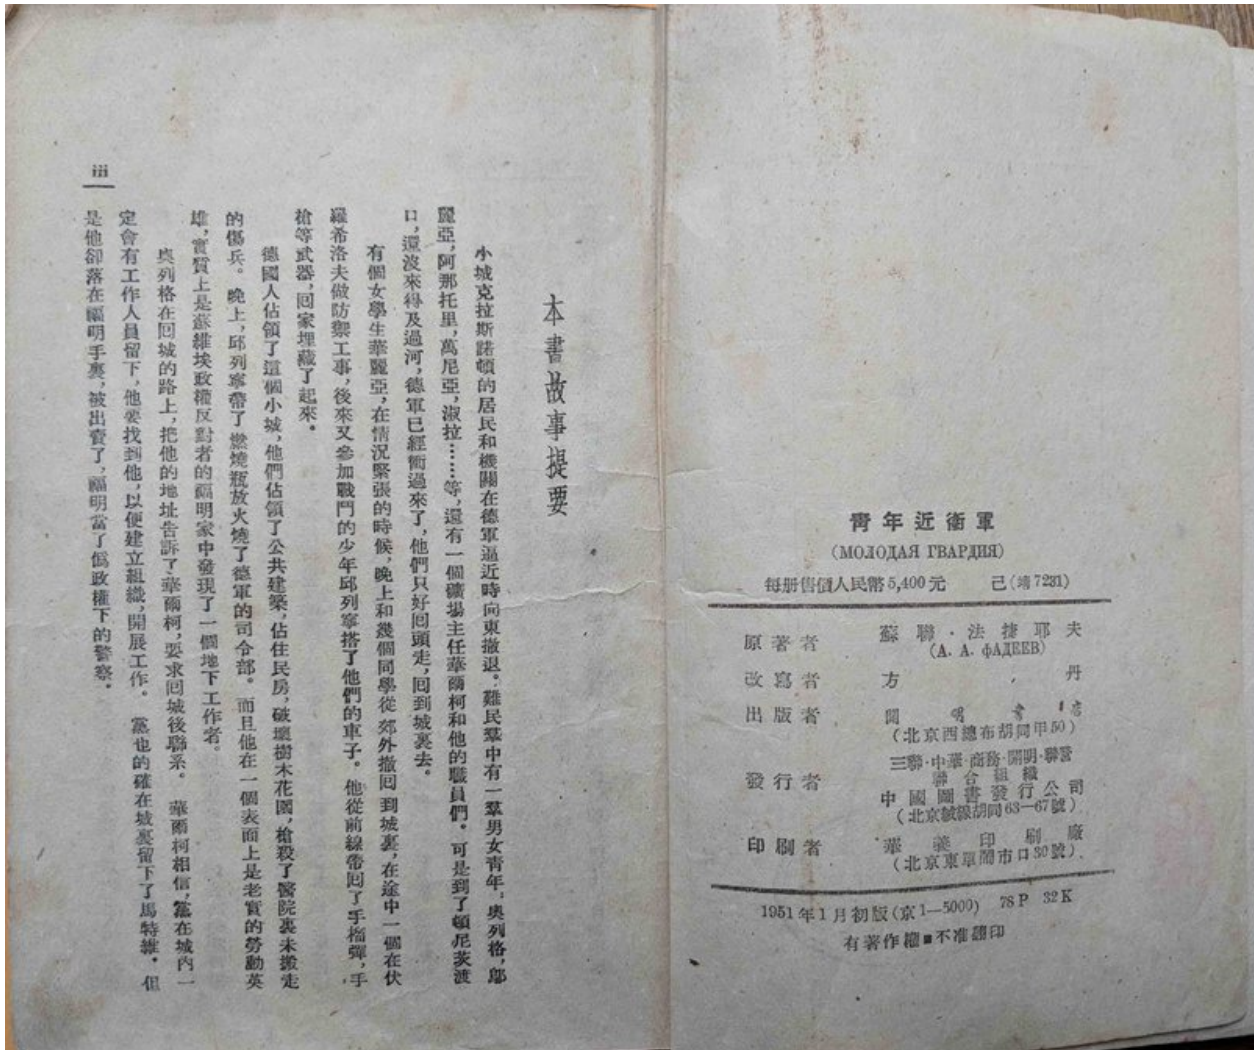 青年近衞軍
(МОЛОДАЯ ГВАРДИЯ)
每册售價人民幣5,400元 己(靖7231)
原著者 蘇聯·法捷耶夫
(А. А. ФАДЕЕВ)
改寫者 方丹
出版者 開明書店
(北京西總布胡同甲50)
發行者 三聯·中華·商務·開明·聯營
聯合組織
中國圖書發行公司
(北京絨線胡同63—67號)
印刷者 華義印刷廠
(北京東單閙市口30號)
1951年1月初版(京1—5000) 78P 32K
有著作權■不准翻印
本書故事提要
小城克拉斯諾頓的居民和機關在德軍逼近時向東撤退。難民羣中有一羣男女青年，奧列格，鄔
麗亞，阿那托里，萬尼亞，淑拉……等，還有一個礦場主任華爾柯和他的職員們。可是到了頓尼茨渡
口，還沒來得及過河，德軍已經衝過來了，他們只好囘頭走，囘到城裏去。
有個女學生華麗亞，在情況緊張的時候，晚上和幾個同學從郊外撤囘到城裏，在途中一個在伏
羅希洛夫做防禦工事，後來又參加戰鬥的少年邱列寧搭了他們的車子。他從前線帶囘了手榴彈，手
槍等武器，囘家埋藏了起來。
德國人佔領了這個小城，他們佔領了公共建築，佔住民房，破壞樹木花園，槍殺了醫院裏未搬走
的傷兵。晚上，邱列寧帶了燃燒瓶放火燒了德軍的司令部。而且他在一個表面上是老實的勞動英
雄，實質上是蘇維埃政權反對者的福明家中發現了一個地下工作者。
奧列格在囘城的路上，把他的地址告訴了華爾柯，要求囘城後聯系。華爾柯相信，黨在城內一
定會有工作人員留下，他要找到他，以便建立組織，開展工作。黨也的確在城裏留下了馬特維。但
是他卻落在福明手裏，被出賣了，福明當了僞政權下的警察。
iii